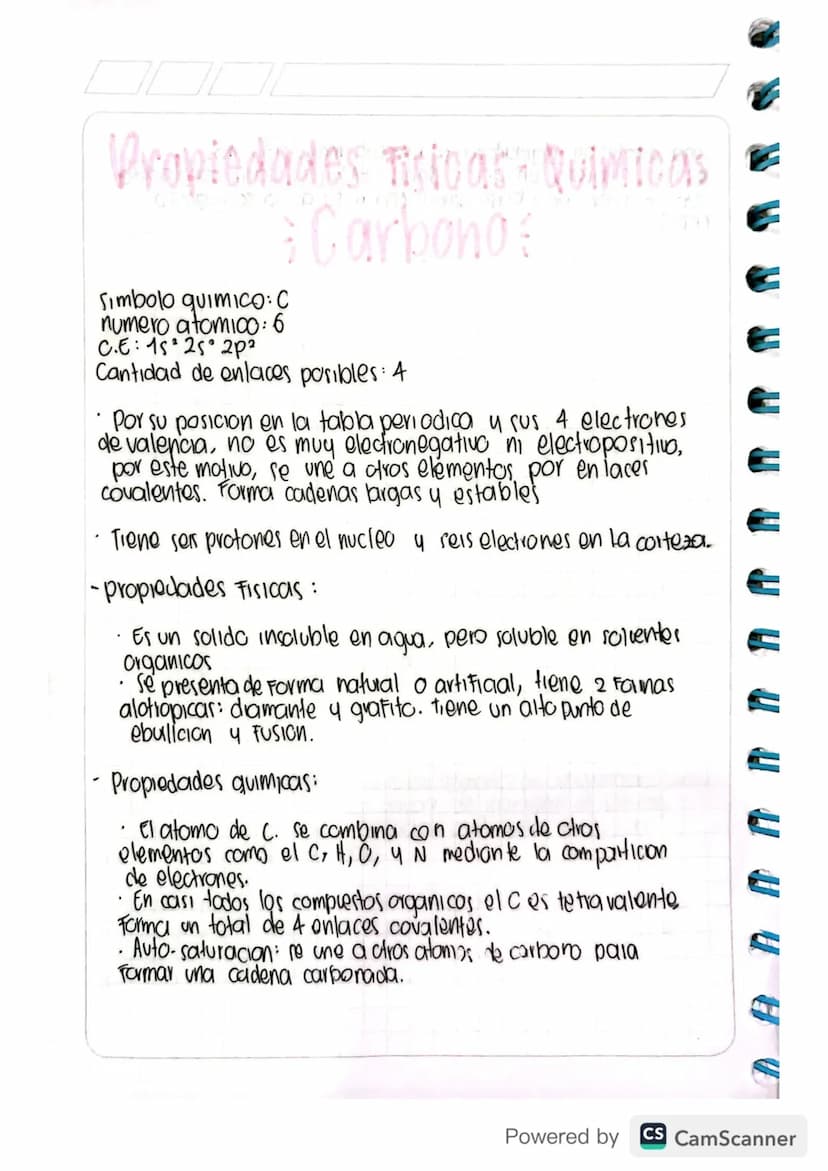 Propiedades Fisicas-Quimicas
Carbono
Simbolo quimico: C
numero atomico: 6
C.E: 1s² 2s² 2p²
Cantidad de enlaces posibles: 4
· Por su posicion en la tabla periodica y sus 4 electrones
de valencia, no es muy electronegativo ni electropositivo,
por este motivo, se une a otros elementos por enlaces
covalentes. Forma cadenas largas y estables
· Tiene seis protones en el nucleo y seis electrones en la corteza.
- propiedades Fisicas:
· Es un solido insoluble en agua, pero soluble en solventes
organicos
· Se presenta de Forma natural o artificial, tiene 2 Formas
alotropicas: diamante y grafito. tiene un alto punto de
ebullicion y Fusion.
- Propiedades quimicas:
· El atomo de C. se combina con atomos de otros
elementos como el C, H, O, y N mediante la comparticion
de electrones.
· En casi todos los compuestos organicos el C es tetravalente,
Forma un total de 4 enlaces covalentes.
· Auto-saturacion: se une a otros atomos de carbono para
Formar una cadena carbonada.
Powered by CS CamScanner